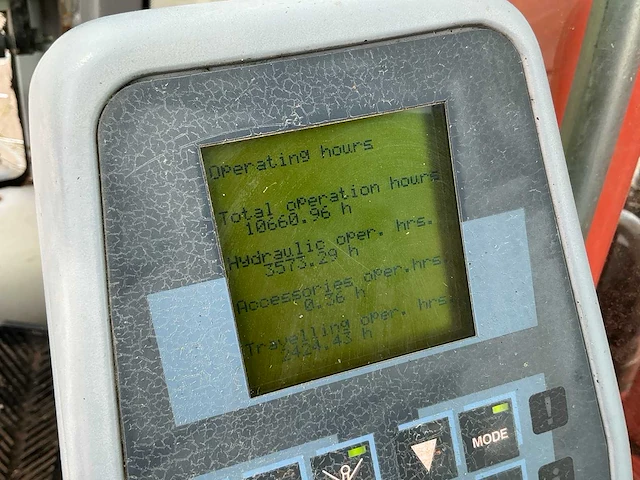 Operating hours
Total operation hours
10660.96 h
Hydraulic oper. hrs.
3573.29 h
Accessories oper.hrs.
0.36 h
Travelling oper. hrs.
2424.43 h
MODE